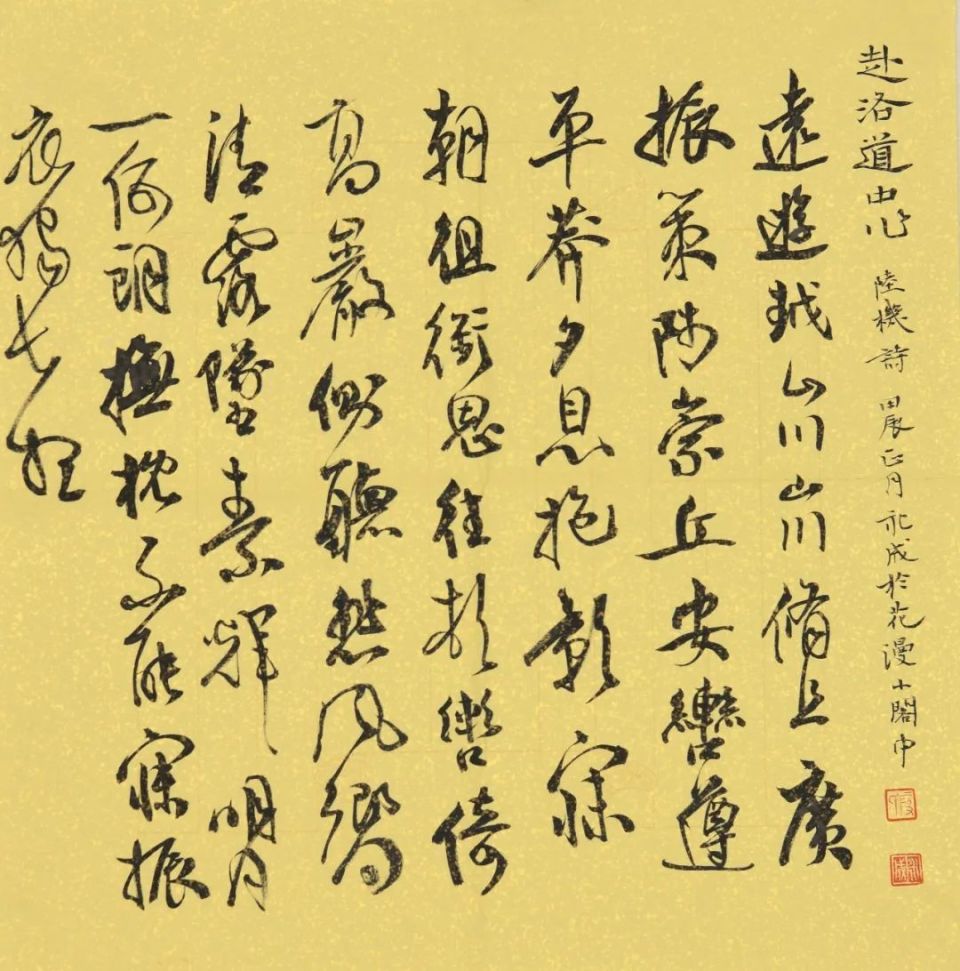 赴洛道中作 陸機詩 甲辰正月 成於花漫小閣中
遠遊越山川山川脩且廣
振策陟崇丘安轡遵
平莽夕息抱影寐
朝徂銜思往頓轡倚
高巖側聽悲風響
清露墜素輝明月
一何朗撫枕不能寐振
衣獨長想